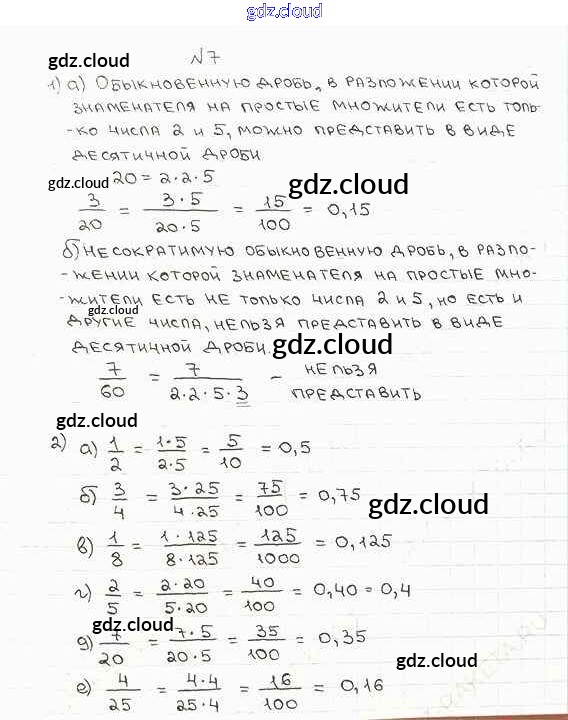 gdz.cloud
gdz.cloud
N 7
1) а) Обыкновенную дробь, в разложении которой
знаменателя на простые множители есть толь-
-ко числа 2 и 5, можно представить в виде
десятичной дроби
gdz.cloud 20 = 2·2·5
gdz.cloud
3/20 = 3·5/20·5 = 15/100 = 0,15
б) Несократимую обыкновенную дробь, в разло-
-жении которой знаменателя на простые мно-
-жители есть не только числа 2 и 5, но есть и
gdz.cloud
другие числа, нельзя представить в виде
десятичной дроби.
gdz.cloud
7/60 = 7/2·2·5·3 – нельзя
представить
gdz.cloud
2) а) 1/2 = 1·5/2·5 = 5/10 = 0,5
б) 3/4 = 3·25/4·25 = 75/100 = 0,75
gdz.cloud
в) 1/8 = 1·125/8·125 = 125/1000 = 0,125
г) 2/5 = 2·20/5·20 = 40/100 = 0,40 = 0,4
gdz.cloud
д) 7/20 = 7·5/20·5 = 35/100 = 0,35
gdz.cloud
е) 4/25 = 4·4/25·4 = 16/100 = 0,16